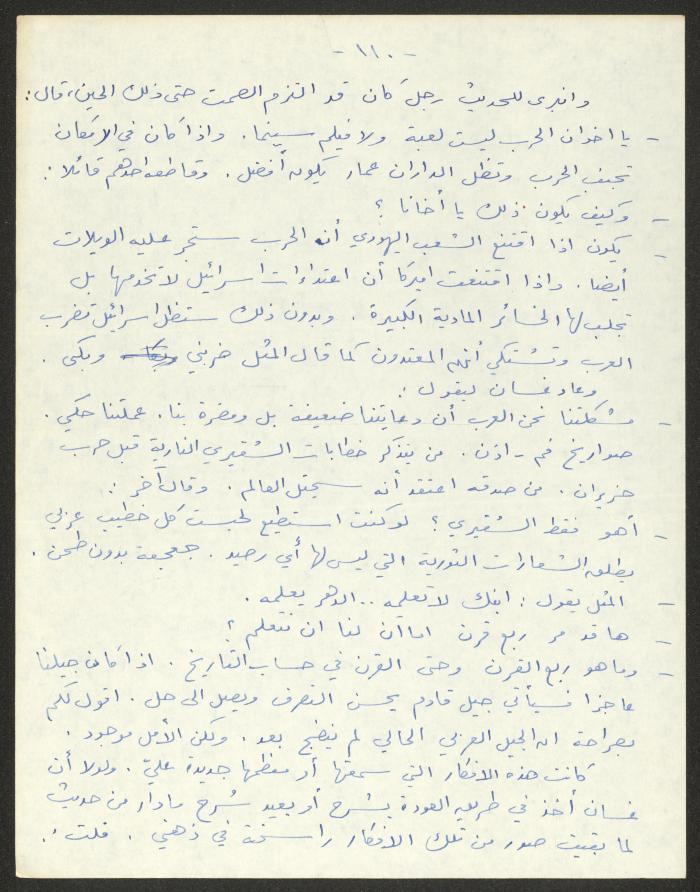 - ١١٠ -
وانبرى للحديث رجل كان قد التزم الصمت حتى ذلك الحين، قال:
- يا اخوان الحرب ليست لعبة ولا فيلم سينما. واذا كان في الامكان
تجنب الحرب وتظل الداران عمار يكون أفضل. وقاطعه احدهم قائلا:
- وكيف يكون ذلك يا أخانا؟
- يكون اذا اقتنع الشعب اليهودي أن الحرب ستجر عليه الويلات
أيضا. واذا اقتنعت اميركا أن اعتداءات اسرائيل لا تخدمها بل
تجلب لها الخسائر المادية الكبيرة. وبدون ذلك ستظل اسرائيل تضرب
العرب وتشتكي أنهم المعتدون كما قال المثل ضربني وبكى.
وعاد غسان ليقول:
- مشكلتنا نحن العرب أن دعايتنا ضعيفة بل ومضرة بنا. عملتنا حكي.
صواريخ فم - اذن. من يتذكر خطابات الشقيري النارية قبل حرب
حزيران. من صدقه اعتقد أنه سيحتل العالم. وقال آخر:
- أهو فقط الشقيري؟ لو كنت استطيع لحبست كل خطيب عربي
يطلق الشعارات الثورية التي ليس لها أي رصيد. جعجعة بدون طحن.
- المثل يقول: ابنك لا تعلمه.. الدهر يعلمه.
- ها قد مر ربع قرن اما آن لنا ان نتعلم؟
- وما هو ربع القرن وحتى القرن في حساب التاريخ. اذا كان جيلنا
عاجزا فسيأتي جيل قادم يحسن التصرف ويصل الى حل. اقول لكم
بصراحة ان الجيل العربي الحالي لم ينضج بعد. ولكن الأمل موجود.
كانت هذه الافكار التي سمعتها أو معظمها جديدة علي. ولولا أن
غسان أخذ في طريق العودة يشرح أو يعيد شرح ما دار من حديث
لما بقيت صور من تلك الافكار راسخة في ذهني. قلت: